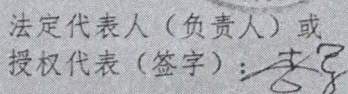 法定代表人（负责人）或
授权代表（签字）：李